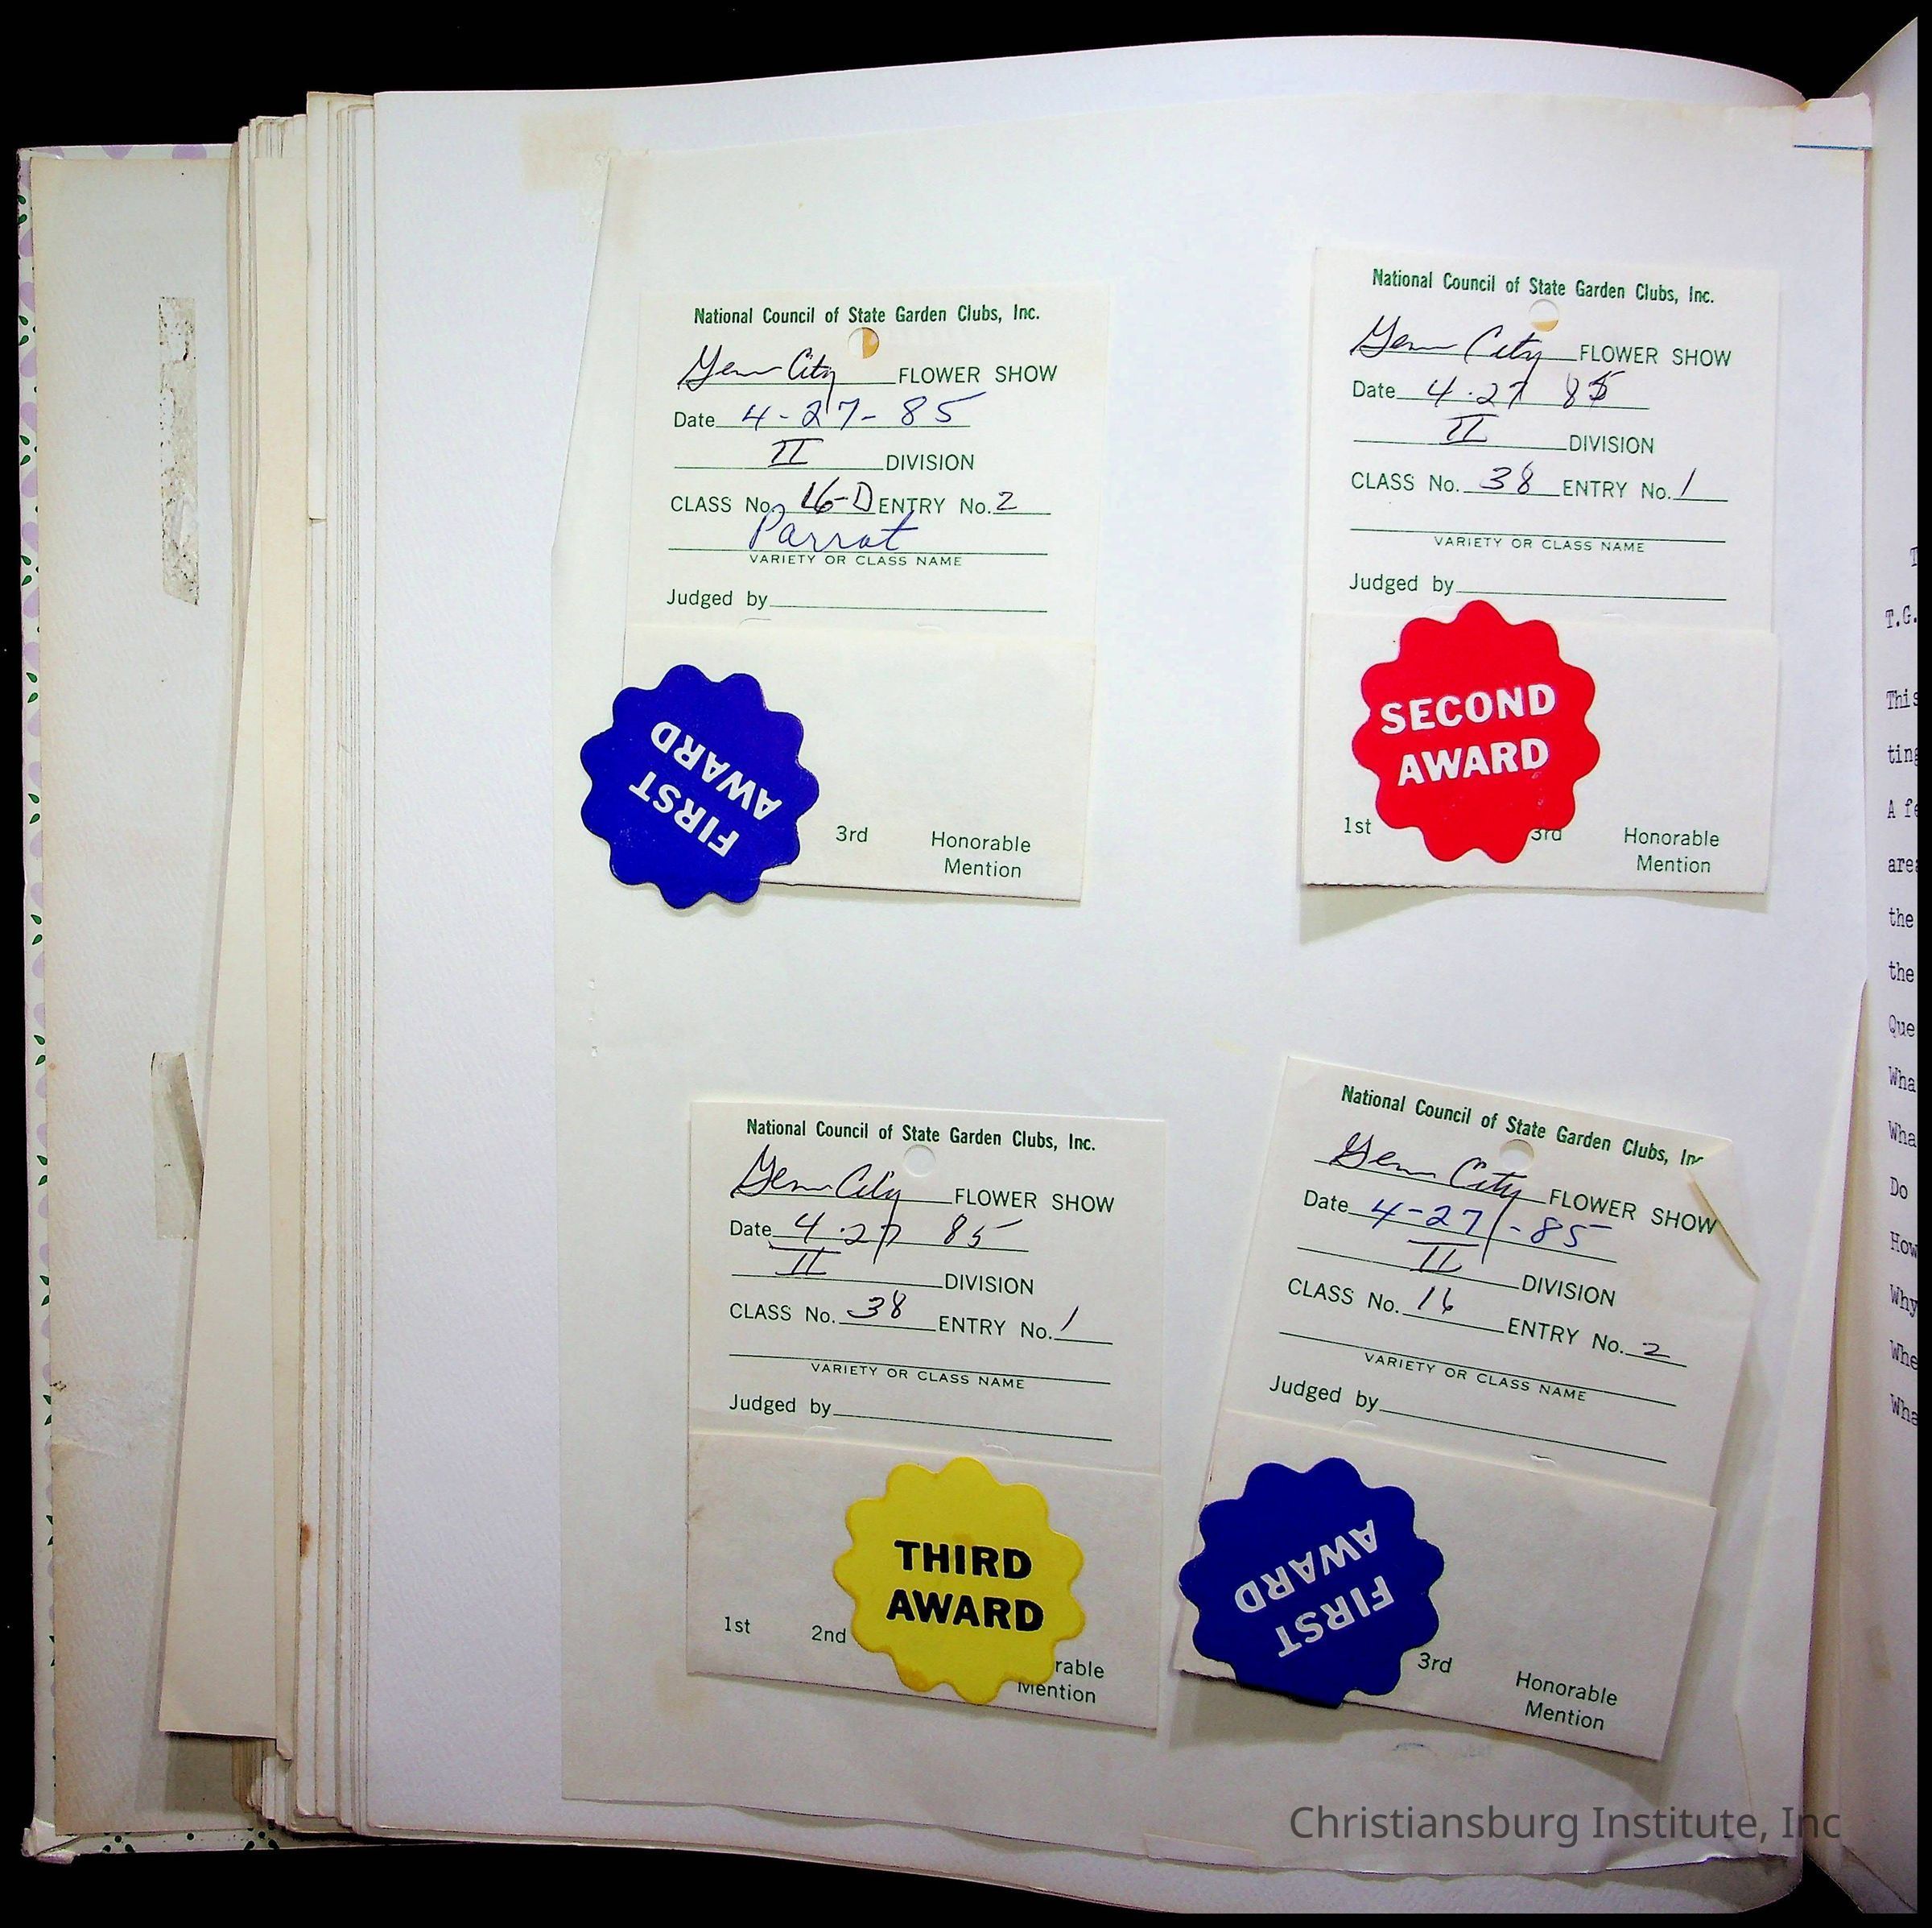 National Council of State Garden Clubs, Inc.
Gem City FLOWER SHOW
Date 4-27-85
II DIVISION
CLASS No. 16-D ENTRY No. 2
Parrot
VARIETY OR CLASS NAME
Judged by
FIRST
AWARD
3rd Honorable
Mention
National Council of State Garden Clubs, Inc.
Gem City FLOWER SHOW
Date 4.27 85
II DIVISION
CLASS No. 38 ENTRY No. 1
VARIETY OR CLASS NAME
Judged by
SECOND
AWARD
1st 3rd Honorable
Mention
National Council of State Garden Clubs, Inc.
Gem City FLOWER SHOW
Date 4.27 85
II DIVISION
CLASS No. 38 ENTRY No. 1
VARIETY OR CLASS NAME
Judged by
THIRD
AWARD
1st 2nd rable
Mention
National Council of State Garden Clubs, Inc
Gem City FLOWER SHOW
Date 4-27-85
II DIVISION
CLASS No. 16 ENTRY No. 2
VARIETY OR CLASS NAME
Judged by
FIRST
AWARD
3rd Honorable
Mention
T.G.
This
ting
A fe
area
the
the
Que
Wha
Wha
Do
How
Why
Whe
Wha
Christiansburg Institute, Inc